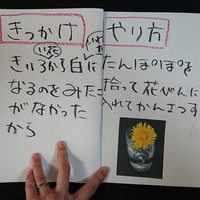 きっかけ
きいろから白に
なるのをみたこ
がなかった
から
やり方
たんぽぽを
拾って花びんに
入れてかんさつす